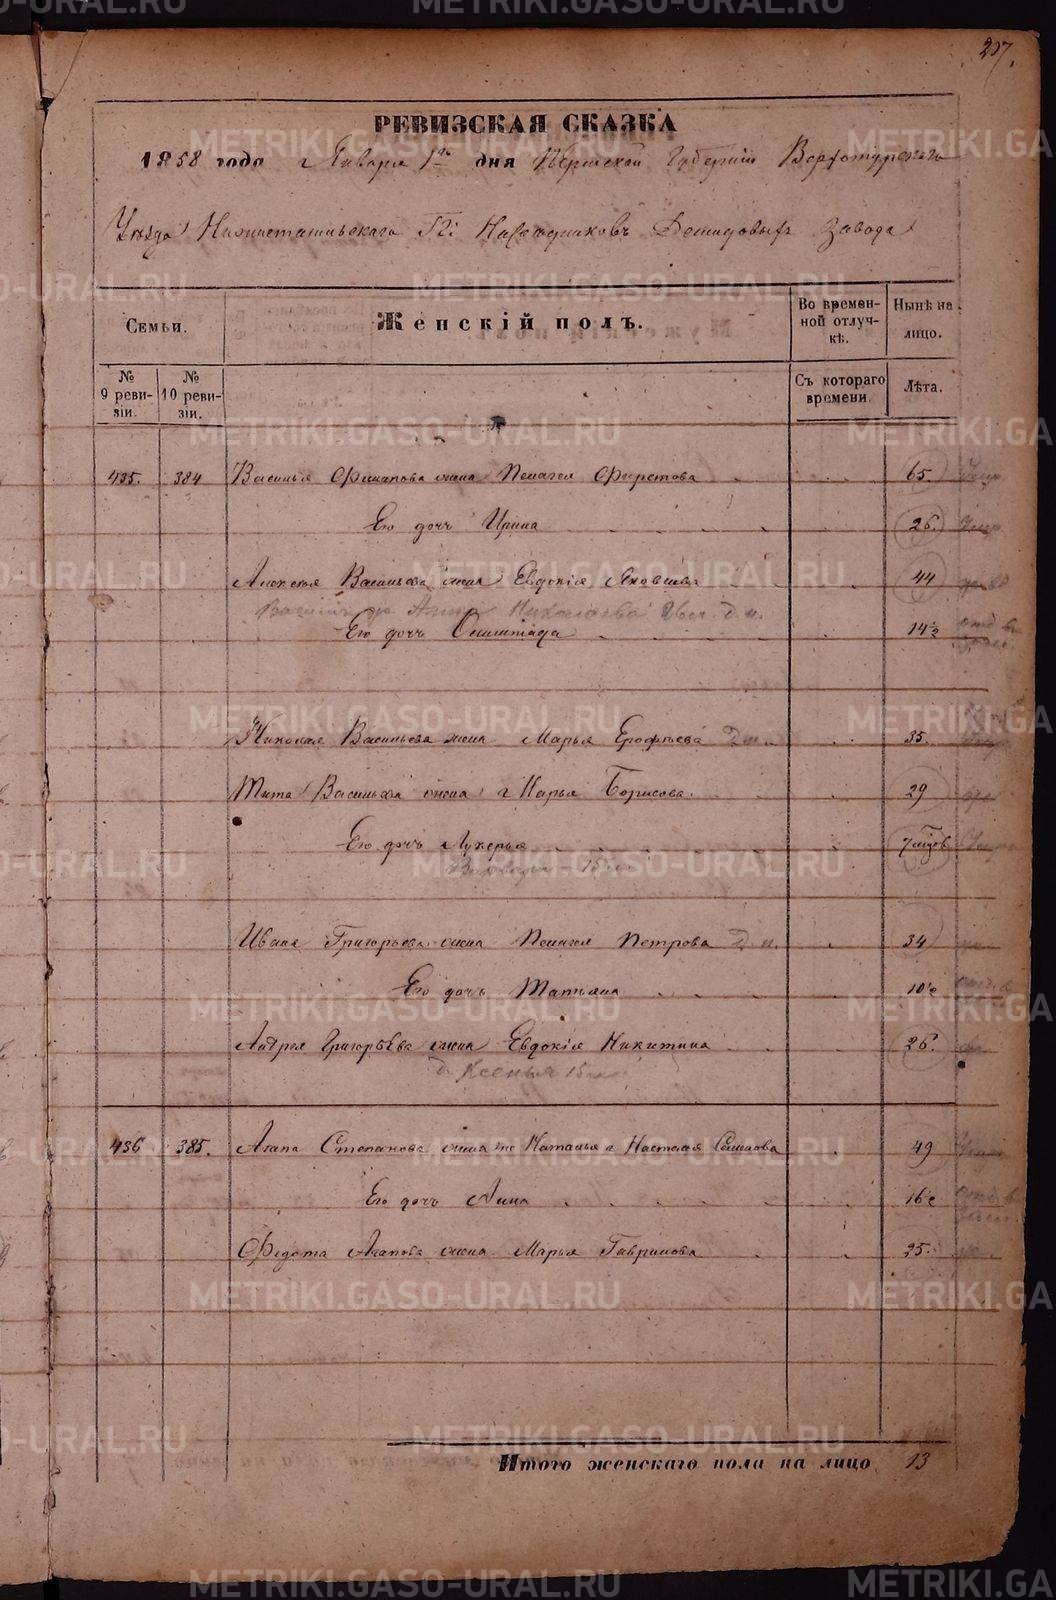 207.
РЕВИЗСКАЯ СКАЗКА
1858 года Января 1го дня Пермской Губернии Верхотурского
Уезда Нижнетагильского Гг. Наследников Демидовых Завода
Семьи.
Женскій полъ.
Во времен-
ной отлуч-
кѣ.
Нынѣ на
лицо.
№
9 реви-
зіи.
№
10 реви-
зіи.
Съ котораго
времени.
Лѣта.
435. 384 Василья жена Пелагея 65.
Его дочь Ирина 26.
Алексея Васильева жена Евдокія Яковлева 44
Анна Николаева
Его дочь 14½
Николая Васильева жена Марья Ерофѣева 35.
Тита Васильева жена Марья Борисова. 29
Его дочь Лукерья 7 мцов
Варвара 15
Ивана Григорьева жена Пелагея Петрова Д. н. 34
Его дочь Татьяна 10½
Андрея Григорьева жена Евдокія Никитина 26.
Д. Ксенья 15
436 385. Агапа Степанова жена 49
Его дочь Анна 16½
Федота Агапова жена Марья Гаврилова 25.
Итого женскаго пола на лицо 13
METRIKI.GASO-URAL.RU